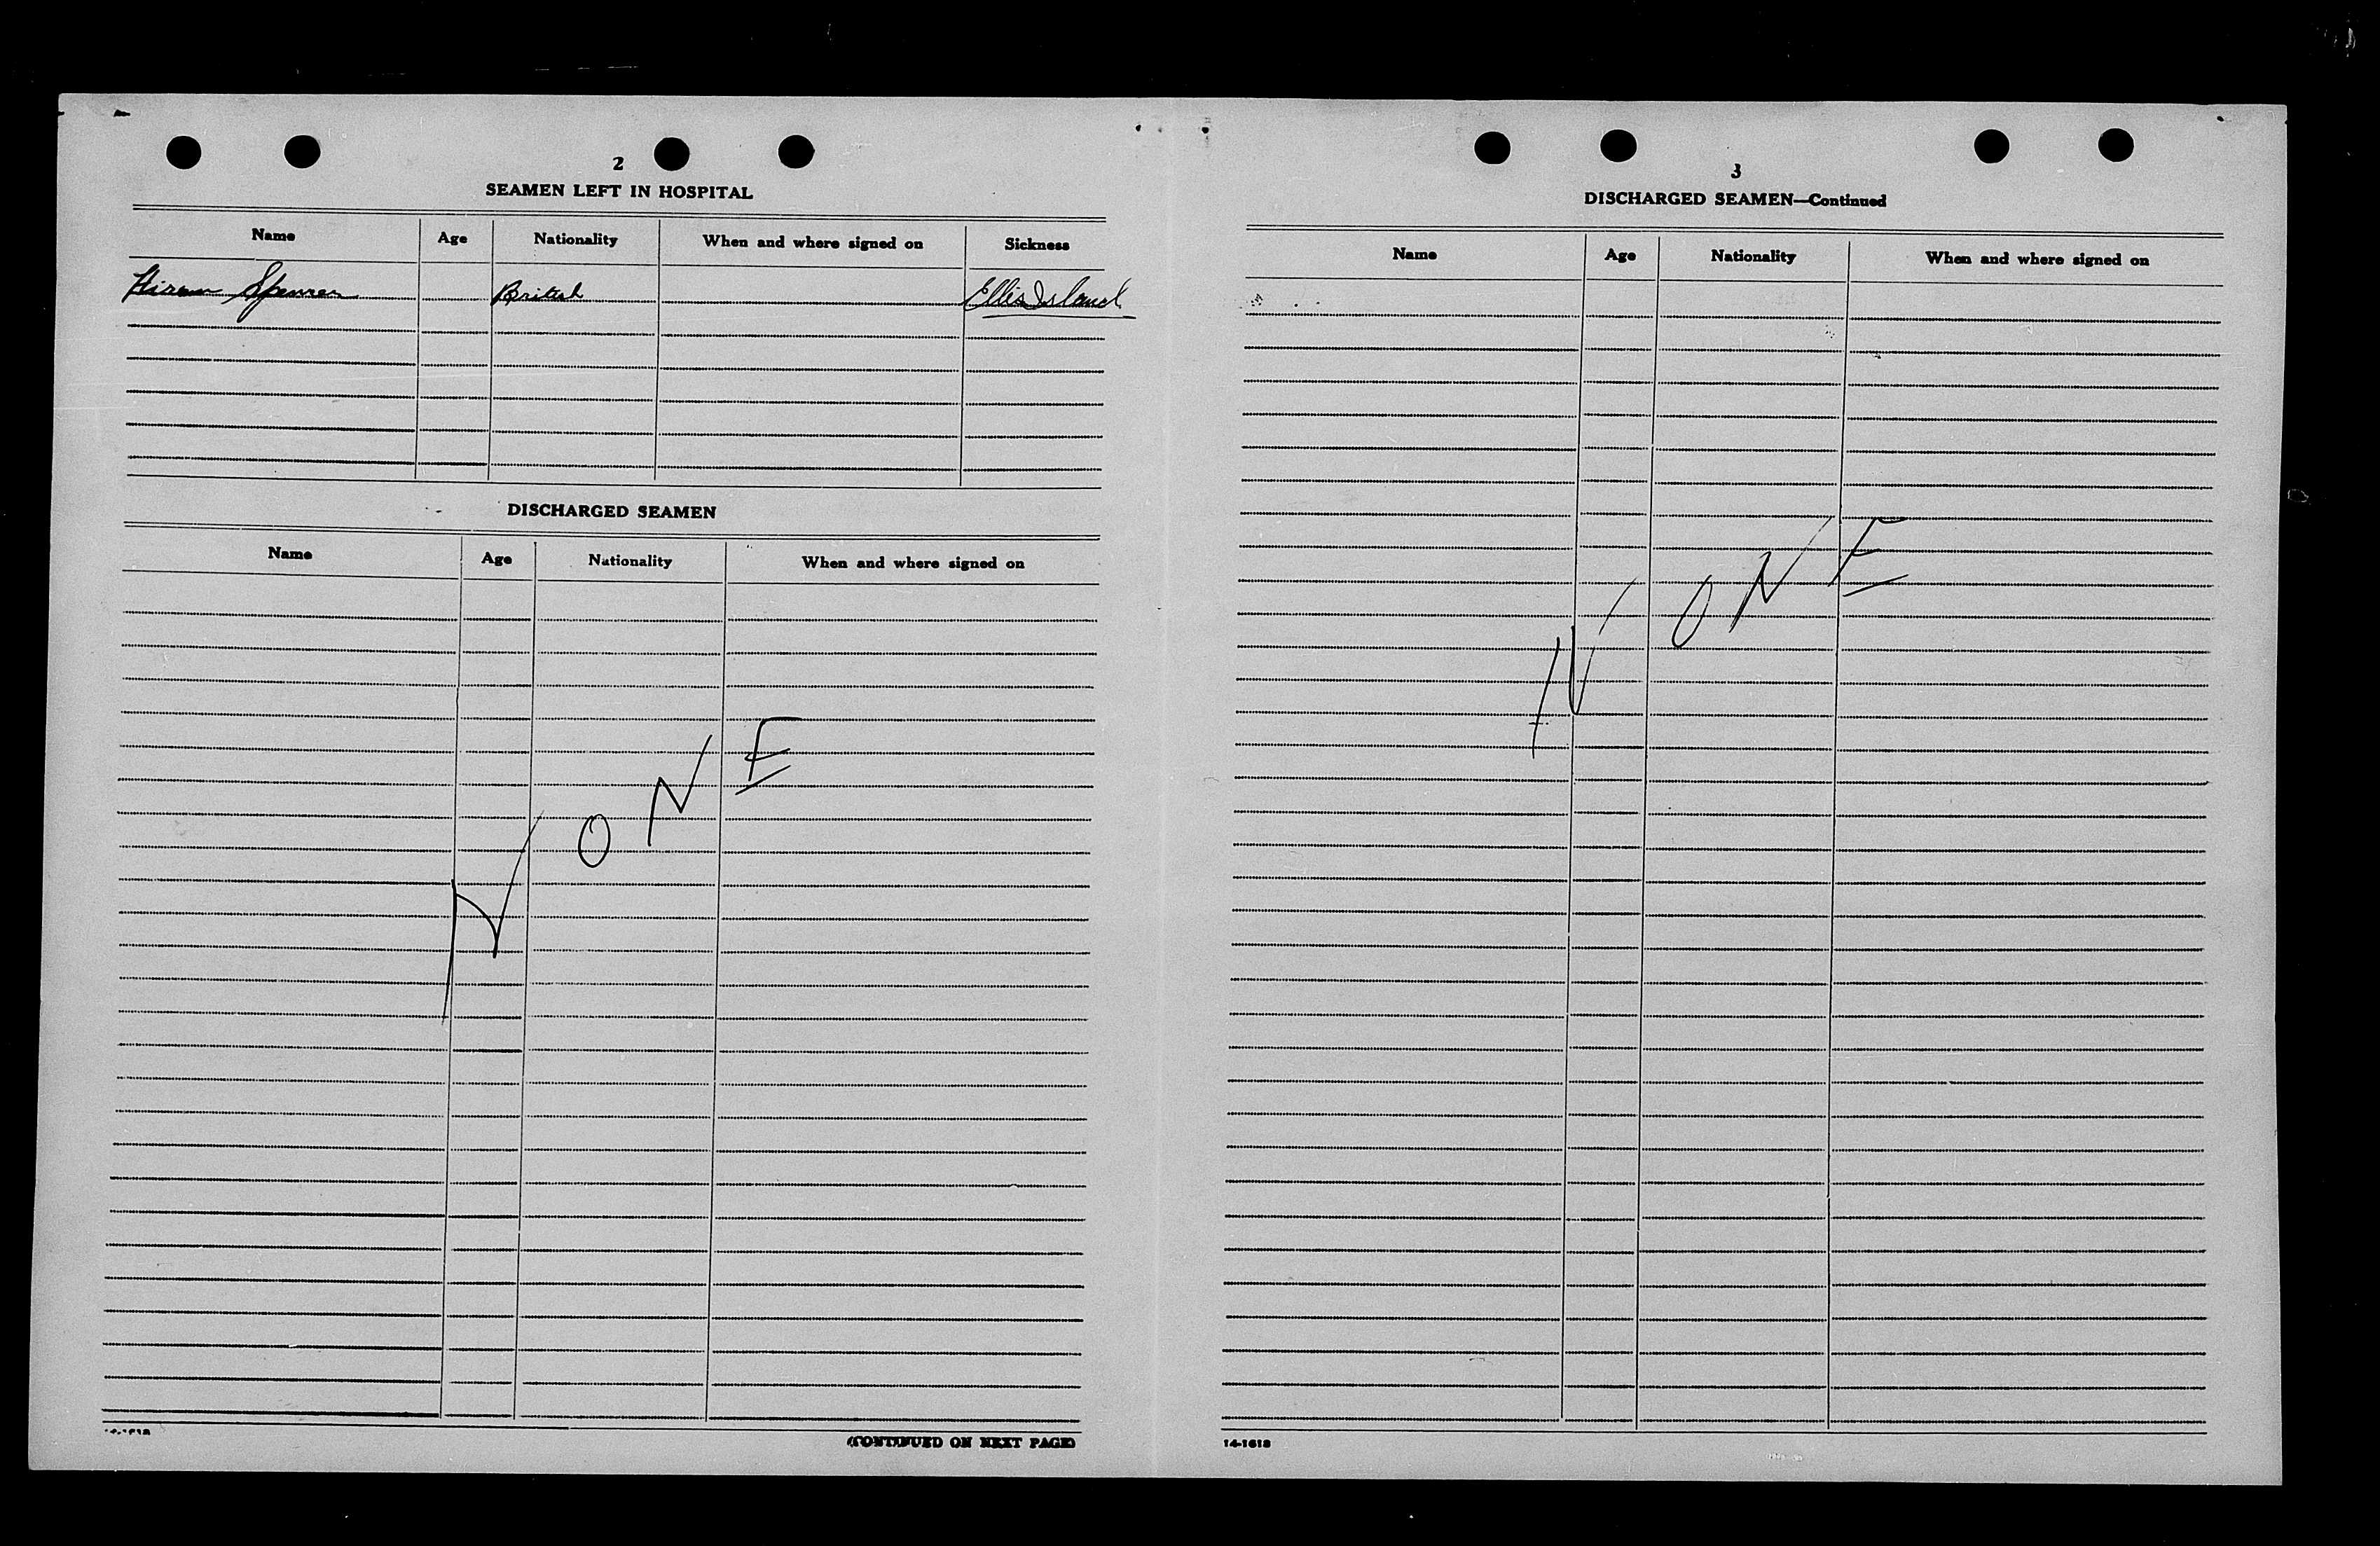 2
SEAMEN LEFT IN HOSPITAL
Name Age Nationality When and where signed on Sickness
Hiram Spencer British Ellis Island
DISCHARGED SEAMEN
Name Age Nationality When and where signed on
NONE
(CONTINUED ON NEXT PAGE)
3
DISCHARGED SEAMEN—Continued
Name Age Nationality When and where signed on
NONE
14-1618